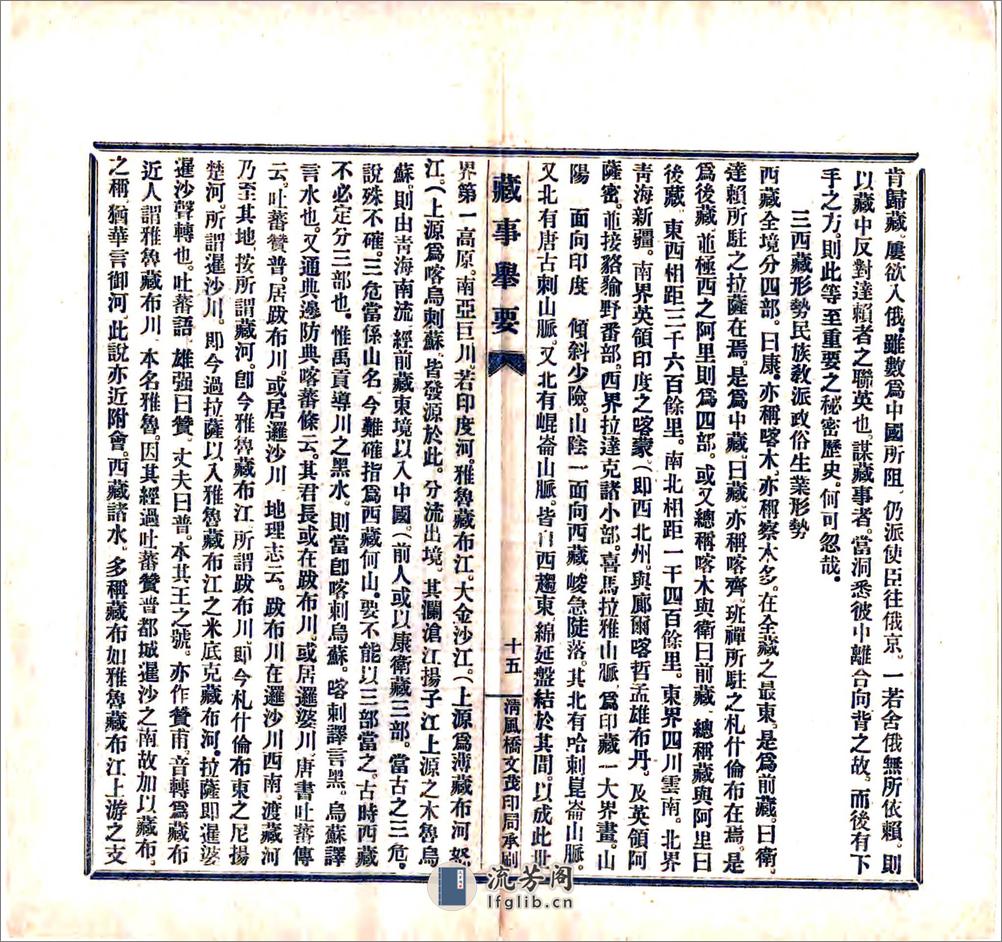 肯歸藏、屢欲入俄。雖數爲中國所阻、仍派使臣往俄京。一若舍俄無所依賴。則
以藏中反對達賴者之聯英也。謀藏事者。當洞悉彼中離合向背之故。而後有下
手之方。則此等至重要之秘密歷史。何可忽哉。
三西藏形勢民族教派政俗生業形勢
西藏全境分四部。曰康。亦稱喀木、亦稱察木多。在全藏之最東。是爲前藏。曰衛。
達賴所駐之拉薩在焉。是爲中藏。曰藏、亦稱喀齊、班禪所駐之札什倫布在焉。是
爲後藏。並極西之阿里則爲四部。或又總稱喀木與衛曰前藏、總稱藏與阿里曰
後藏、東西相距三千六百餘里。南北相距一千四百餘里。東界四川雲南。北界
靑海新疆。南界英領印度之喀蒙(即西北州。與廓爾喀哲孟雄布丹。及英領阿
薩密。並接貉貐野番部。西界拉達克諸小部。喜馬拉雅山脈、爲印藏一大界畫。山
陽一面向印度、傾斜少險。山陰一面向西藏、峻急陡落。其北有哈剌崑崙山脈。
又北有唐古剌山脈。又北有崐崙山脈。皆自西趨東、綿延盤結於其間。以成此世
藏事舉要
十五
淸風橋文茂印局承刷
界第一高原。南亞巨川。若印度河。雅魯藏布江。大金沙江。(上源爲薄藏布河怒
江。(上源爲喀烏剌蘇。皆發源於此。分流出境。其瀾滄江揚子江上源之木魯烏
蘇。則出靑海南流、經前藏東境以入中國。(前人或以康衛藏三部。當古之三危。
說殊不確。三危當係山名、今難確指爲西藏何山。要不能以三部當之。古時西藏
不必定分三部也。惟禹貢導川之黑水。則當卽喀剌烏蘇。喀剌譯言黑。烏蘇譯
言水也。又通典邊防典喀蕃條云。其君長或在跋布川。或居邏婆川、唐書吐蕃傳
云。吐蕃贊普。居跋布川。或居邏沙川、地理志云。跋布川在邏沙川西南。渡藏河
乃至其地、按所謂藏河。卽今雅魯藏布江、所謂跋布川、即今札什倫布東之尼揚
楚河。所謂邏沙川。即今過拉薩以入雅魯藏布江之米底克藏布河。拉薩即邏婆
邏沙聲轉也。吐蕃語、雄强曰贊、丈夫曰普。本其王之號。亦作贊甫。音轉爲藏布
近人謂雅魯藏布川、本名雅魯。因其經過吐蕃贊普都城邏沙之南故加以藏布。
之稱、猶華言御河。此說亦近附會。西藏諸水、多稱藏布如雅魯藏布江上游之支
流芳阁
lfglib.cn